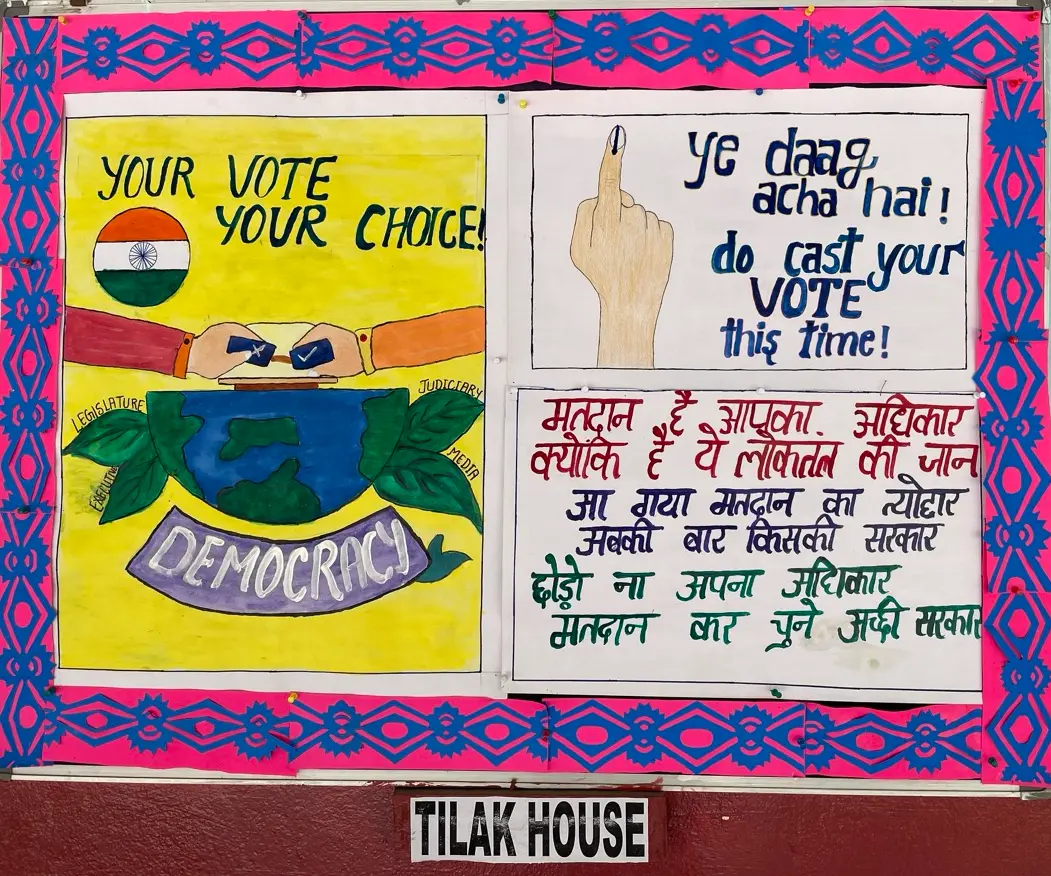 YOUR VOTE
YOUR CHOICE!
LEGISLATURE
EXECUTIVE
JUDICIARY
MEDIA
DEMOCRACY
ye daag
acha hai!
do cast your
VOTE
this time!
मतदान है आपका अधिकार
क्योंकि है ये लोकतंत्र की जान
आ गया मतदान का त्योहार
अबकी बार किसकी सरकार
छोड़ो ना अपना अधिकार
मतदान कर चुने अच्छी सरकार
TILAK HOUSE